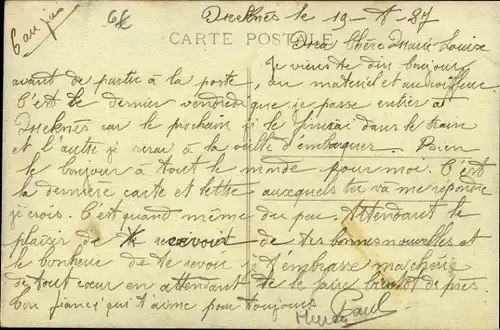 6 au jus
6€
Meeknès le 19-A-27
CARTE POSTALE
Ma Chère Marie-Louise
Je viens te dire bonjour
avant de partir à la poste, au matériel et au coiffeur.
C'est le dernier vendredi que je passe entier à
Meeknès car le prochain je le finirai dans le train
et l'autre je serai à la veille d'embarquer. Bien
le bonjour à tout le monde pour moi. C'est
la dernière carte et lettre auxquels tu va me répondre
je crois. C'est quand même du peu. Attendant le
plaisir de recevoir de tes bonnes nouvelles et
le bonheur de te revoir je t'embrasse ma chérie
de tout cœur en attendant de le faire bientôt de près.
Ton fiancé qui t'aime pour toujours Paul